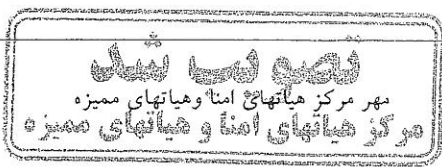 تصویب شد
مهر مرکز هیأتهای امنا وهیاتهای ممیزه
مرکز هیاتهای امنا و هیاتهای ممیزه